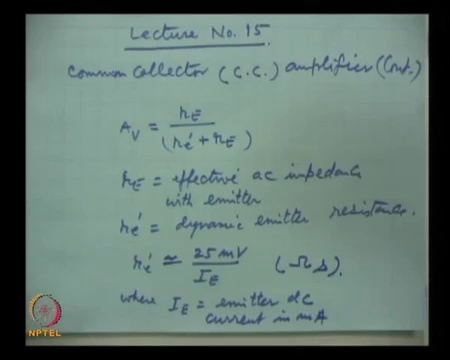 Lecture No. 15.
Common Collector (C.C.) amplifier (Cont.)
A_V = r_E / (r_e' + r_E)
r_E = effective ac impedance
with emitter
r_e' = dynamic emitter resistance.
r_e' ≃ 25 mV / I_E (Ωs).
where I_E = emitter dc
current in mA
NPTEL